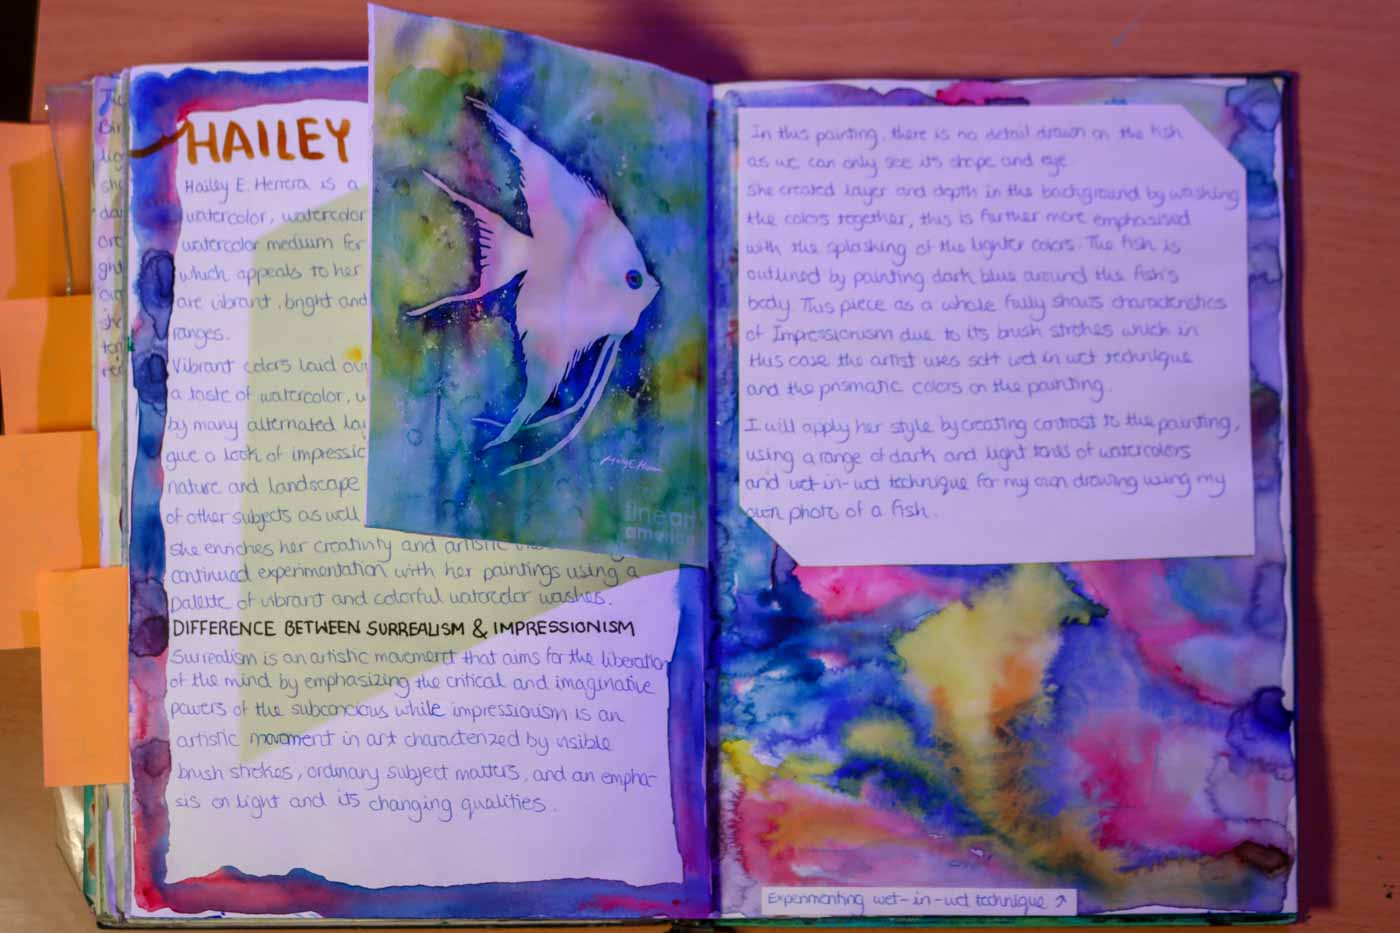 HAILEY
Hailey E. Herrera is a
watercolor, watercolor
watercolor medium for
which appeals to her
are vibrant, bright and
ranges.
Vibrant colors laid ou
a taste of watercolor, w
by many alternated lay
give a look of impressio
nature and landscape
of other subjects as well
she enriches her creativity and artistic
continued experimentation with her paintings using a
palette of vibrant and colorful watercolor washes.
DIFFERENCE BETWEEN SURREALISM & IMPRESSIONISM
Surrealism is an artistic movement that aims for the liberation
of the mind by emphasizing the critical and imaginative
powers of the subconcious while impressionism is an
artistic movement in art characterized by visible
brush strokes, ordinary subject matters, and an empha-
sis on light and its changing qualities.
fineart
america
In this painting, there is no detail drawn on the fish
as we can only see its shape and eye
She created layer and depth in the background by washing
the colors together, this is further more emphasised
with the splashing of the lighter colors. The fish is
outlined by painting dark blue around the fish's
body. This piece as a whole fully shows characteristics
of Impressionism due to its brush strokes which in
this case the artist uses soft wet in wet technique
and the prismatic colors on the painting.
I will apply her style by creating contrast to the painting,
using a range of dark and light tones of watercolors
and wet-in-wet technique for my own drawing using my
own photo of a fish.
Experimenting wet-in-wet technique ↗